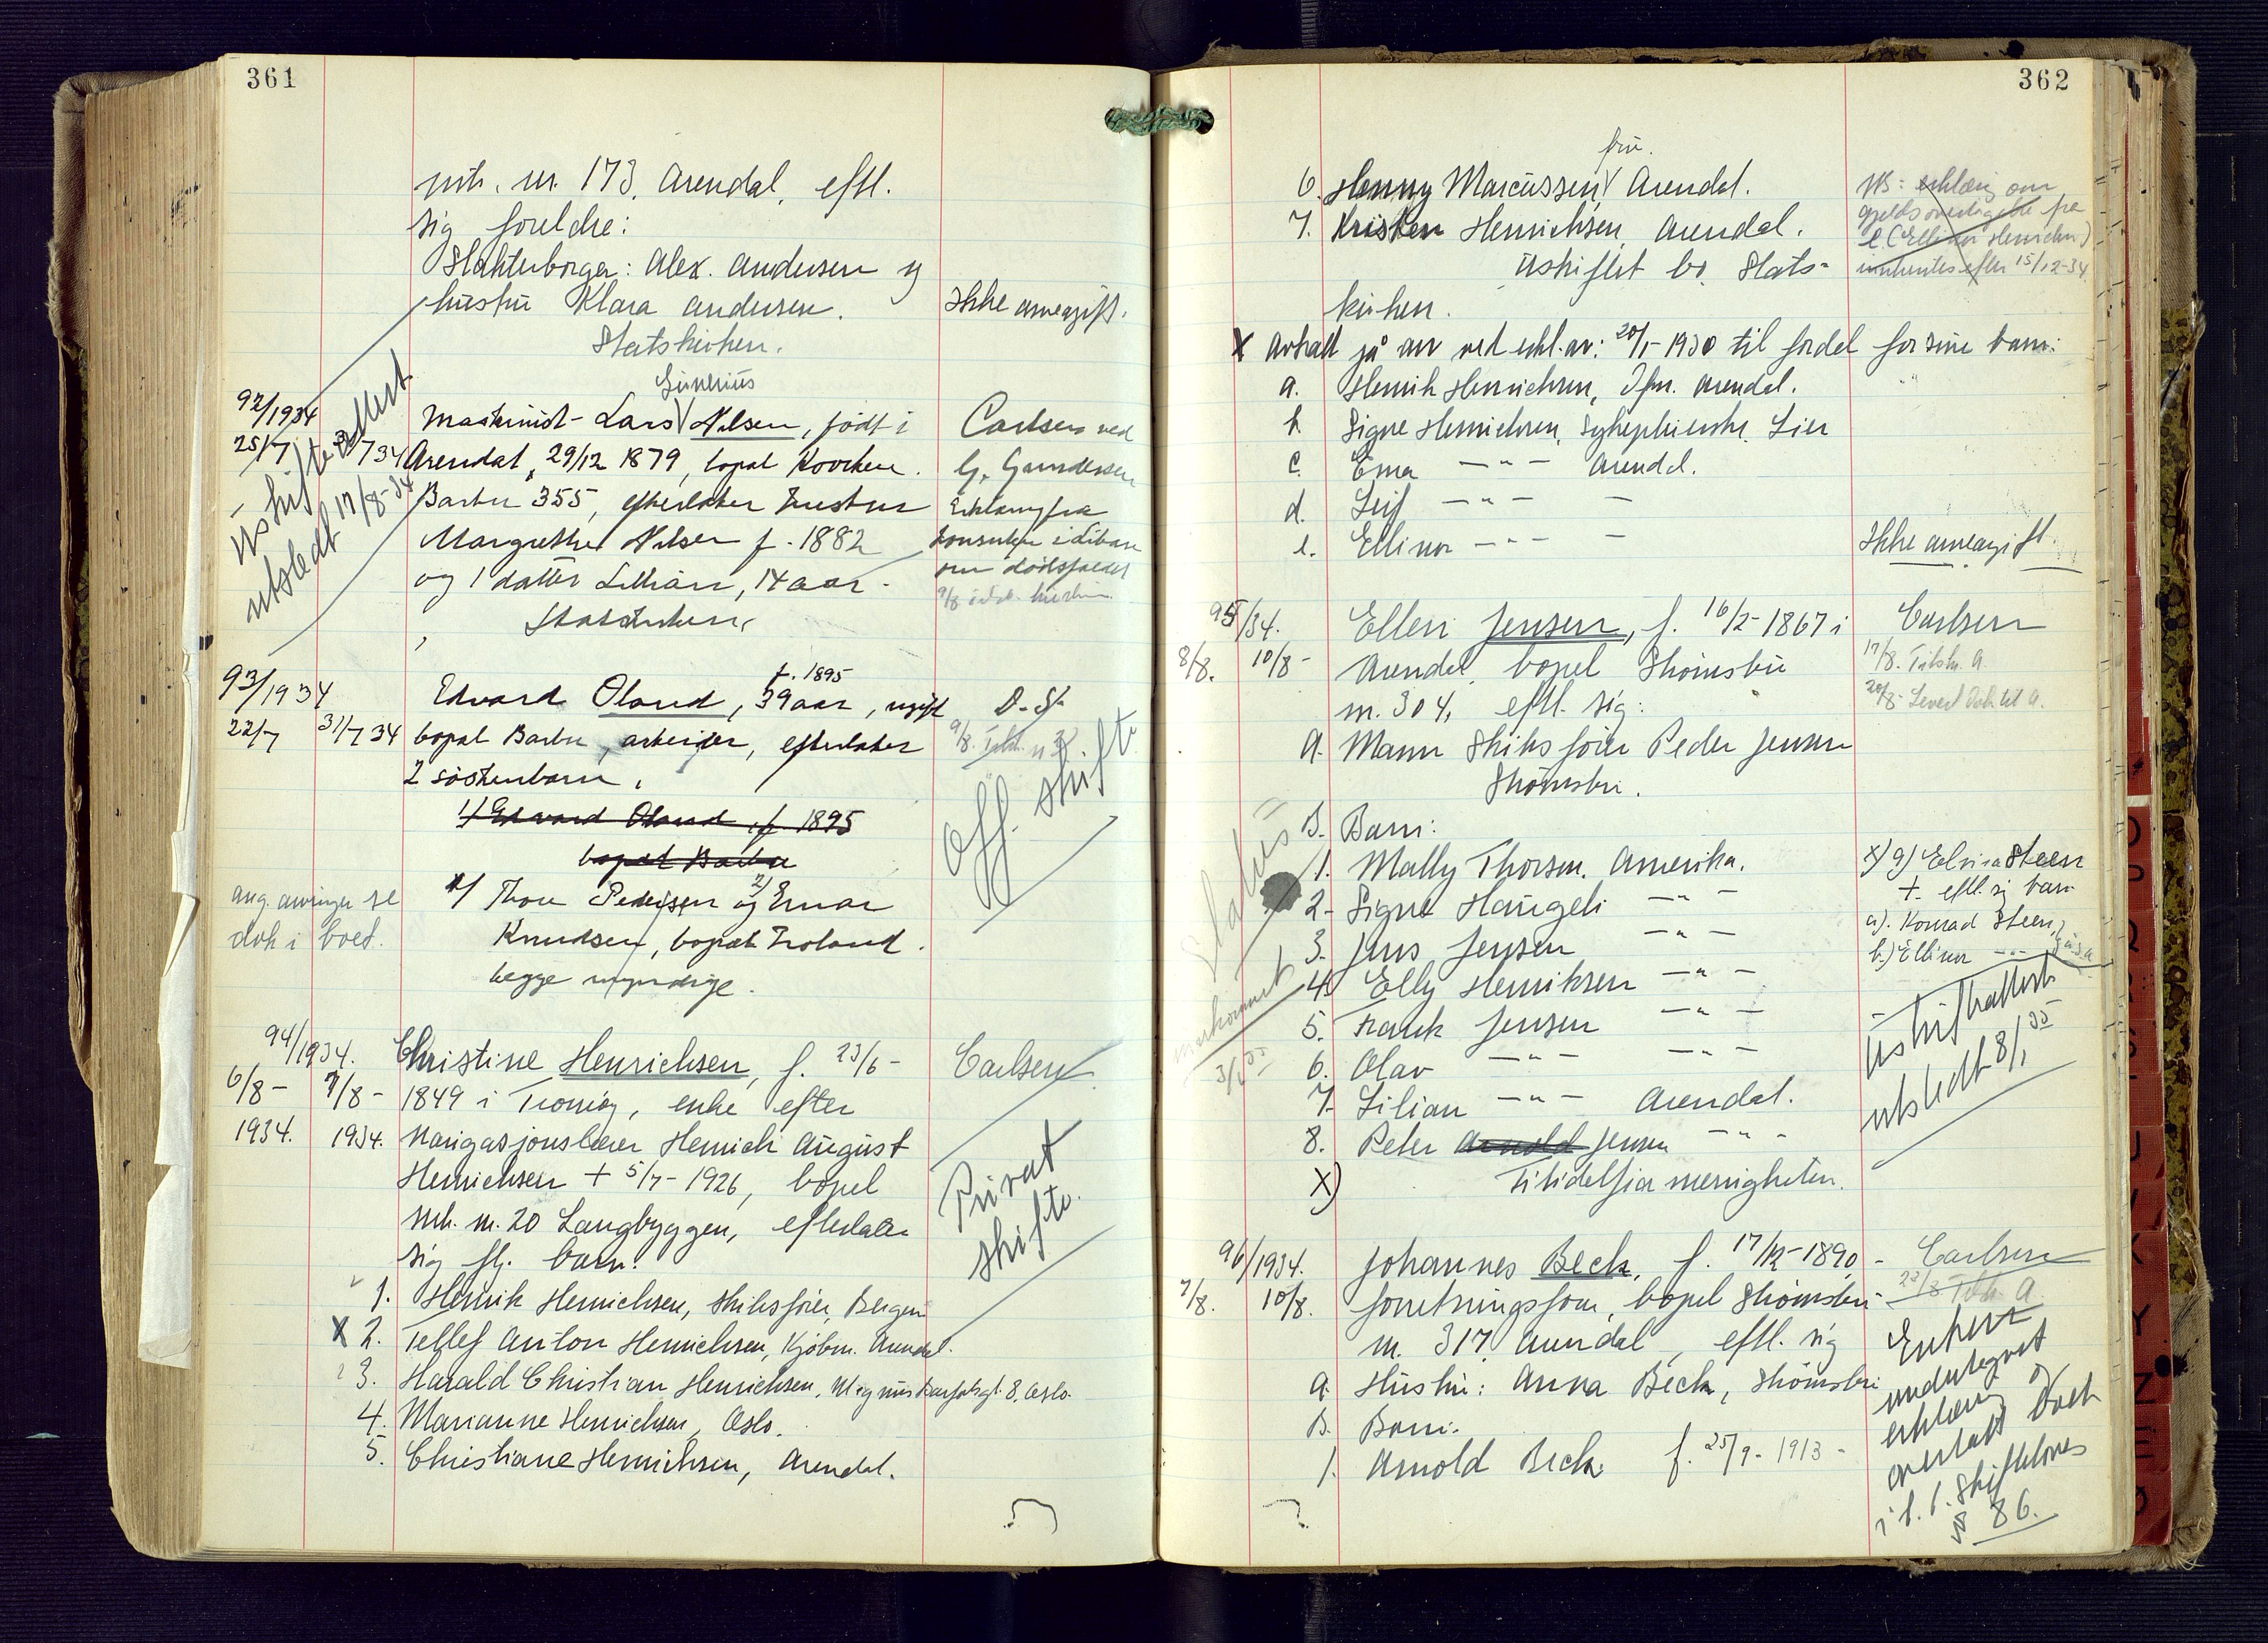 361
mtr. nr. 173, Arendal, eftl.
sig foreldre:
Slakterborger: Alex. Andersen og
hustru Klara Andersen. Ikke arveavgift.
Statskirken.
92/1934
25/7 31/7 34
Uskifteattest
utstedt 17/8-34
Sünenius
Maskinist Lars Nilsen, født i
Arendal, 29/12 1879, bopæl
Barbu 355, efterlater hustru
Margrethe Nilsen f. 1882
og 1 datter Lillian, 14 aar.
Statskirken,
Carlsen ved
G. Gundersen
Erklæring fra
konsulen i Libau
om dødsfaldet
93/1934
22/7 31/7 34
f. 1895
Edvard Oland, 39 aar, ugift
bopæl Barbu, arbeider, efterlater
2 søskenbarn,
1) Edvard Oland, f. 1895
bopæl Barbu
1/ Thore Pedersen og 2) Einar
Knudsen, bopæl Froland.
begge myndige.
D. S.
Off. skifte
ang. arvinger se
dok i boet.
94/1934.
6/8- 7/8-
1934. 1934.
Christine Henrichsen, f. 23/6-
1849 i Tromøy, enke efter
Navigasjonslærer Henrich August
Henrichsen + 5/7-1926, bopel
mtr. nr. 20 Langbryggen, efterlater
sig flg. barn:
Carlsen
Privat
skifte.
1. Henrik Henrichsen, skibsfører, Bergen
X 2. Tellef Anton Henrichsen, Kjøbm. Arendal.
3. Harald Christian Henrichsen, Magnus Barfotsgt. 8, Oslo.
4. Marianne Henrichsen, Oslo.
5. Christiane Henrichsen, Arendal.
362
fru.
6. Henny Marcussen, Arendal.
7. Kristen Henrichsen, Arendal.
Uskiftet bo. Stats-
kirken.
NB: erklæring om
gjeldsovertagelse fra
e. (Ellinor Henrichsen)
innhentes efter 15/12-34
X Avkall på arv ved erkl. av: 20/1-1930 til fordel for sine barn:
a. Henrik Henrichsen, Arendal.
b. Signe Henrichsen, Sykepleierske, Lier
c. Erna -"- Arendal.
d. Leif -"- -
e. Ellinor -"- -
Ikke arveavgift.
95/34.
8/8. 10/8-
Ellen Jensen, f. 16/2-1867 i
Arendal, bopel Strømsbu
nr. 304, eftl. sig:
A. Mann Skibsfører Peder Jensen
Strømsbu.
Carlsen
17/8. Tilskr. A.
20/8- Levert Dok til A.
B. Barn:
1. Mally Thorsen. Amerika.
2. Signe Haugeli -"-
3. Jens Jensen -"-
4. Elly Henriksen -"-
5. Frank Jensen -"-
6. Olav -"- -"-
7. Lilian -"- Arendal.
8. Peter Arnold Jensen -"-
X) Filidelfia menigheten.
x) 9) Elvira Steen
+ eftl. sig barn
a). Konrad Steen,
b.) Ellinor -"-
Uskifteattest
utstedt 8/1 35
3/1 35
96/1934.
7/8. 10/8.
Johannes Beck, f. 17/12-1890 -
forretningsfører, bopel Strømsbu
nr. 317, Arendal, eftl. sig
A. Hustru: Anna Beck, Strømsbu
B. Barn:
1. Arnold Beck f. 25/9-1913-
Carlsen
Enken
undertegnet
erklæring og
overtatt boet
i h. t. Skiftelovens
§ 86.